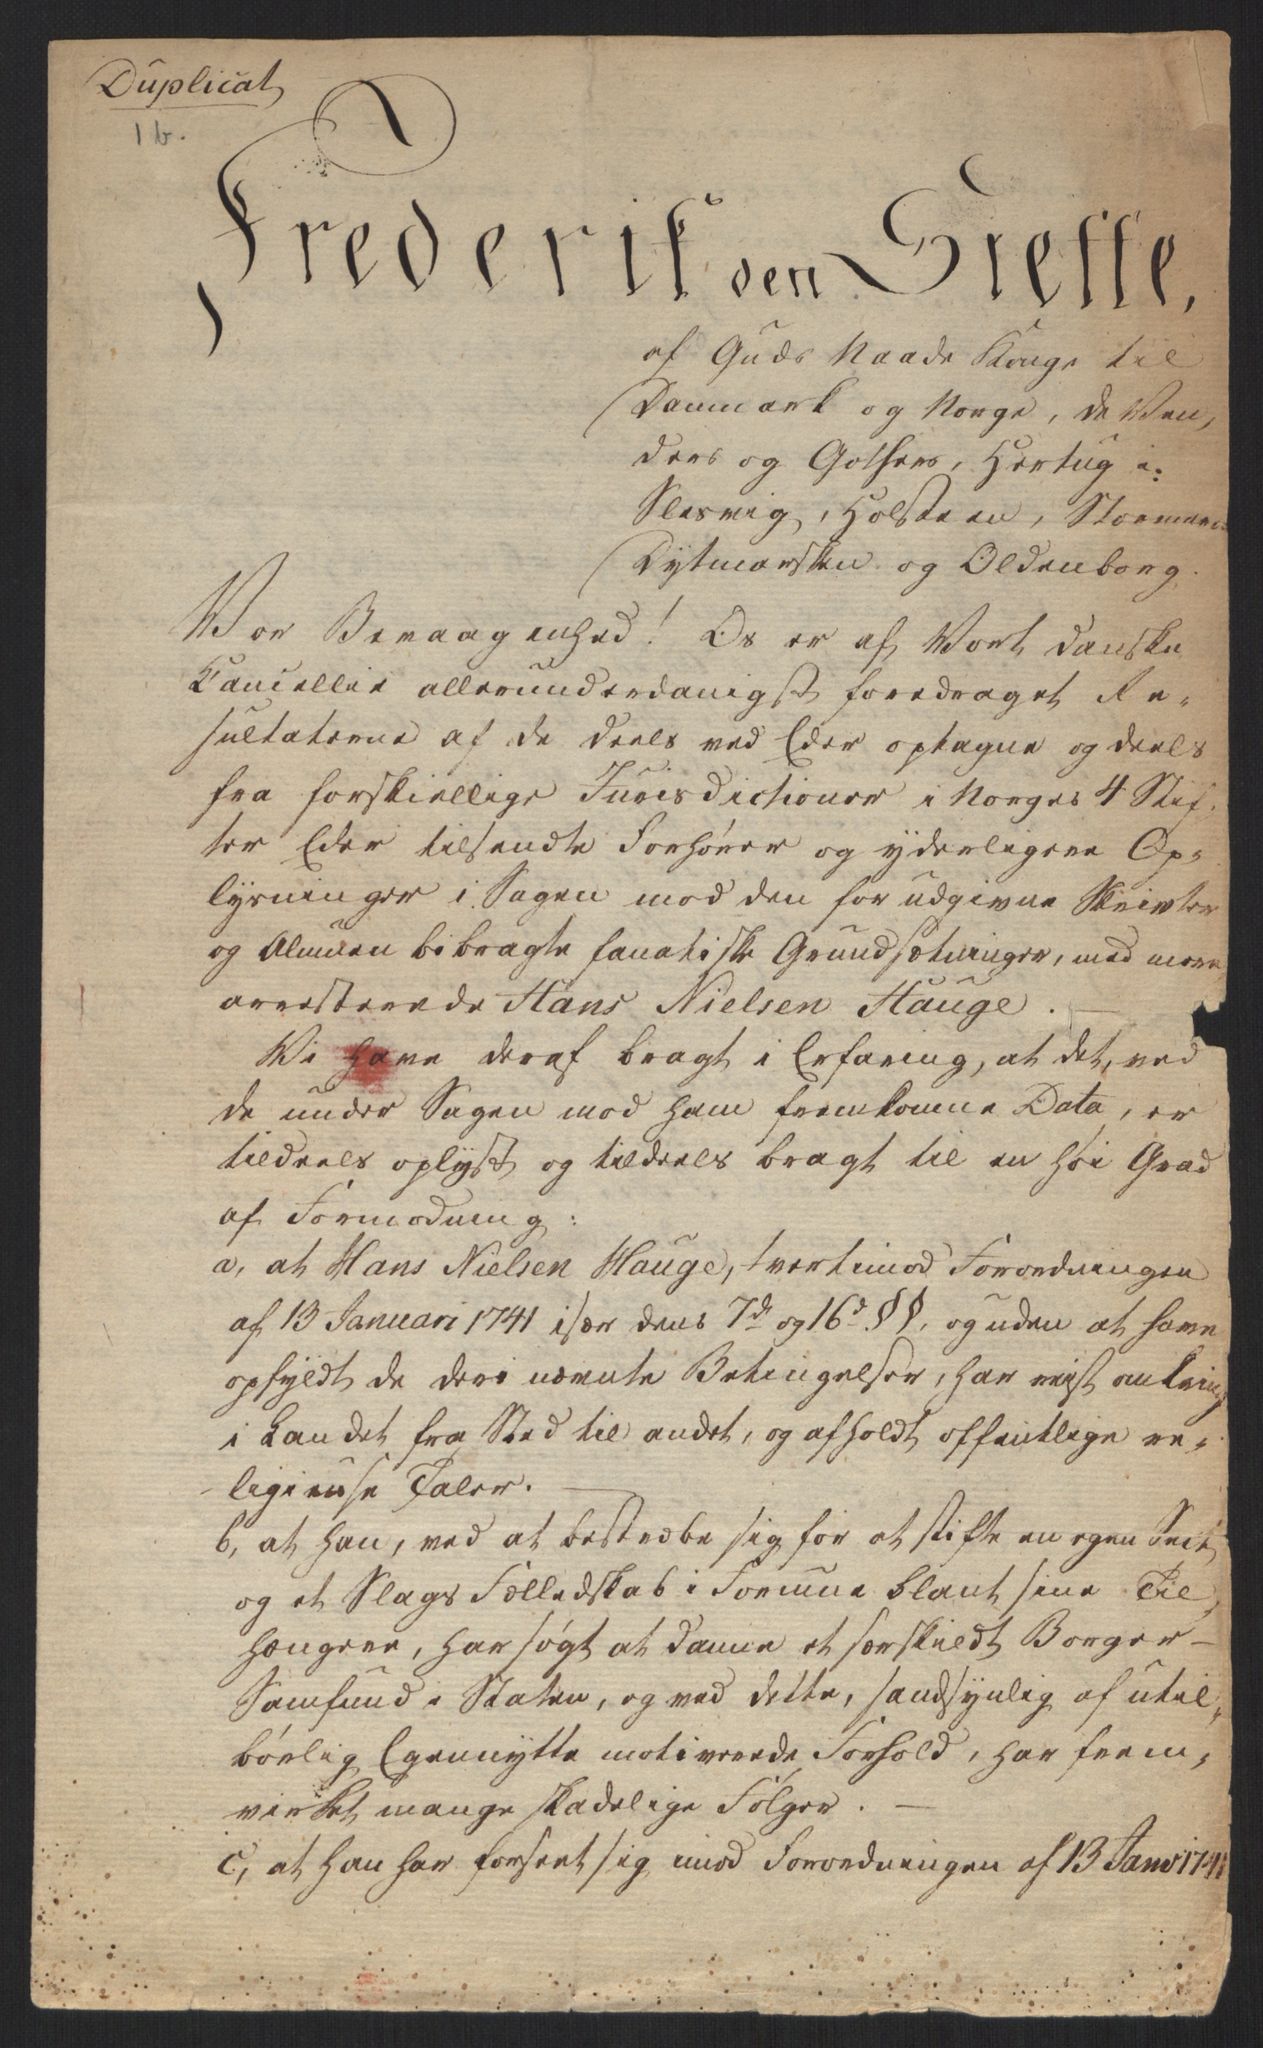 Duplicat
1 b.
Frederik den Siette,
af Guds Naade Konge til
Danmark og Norge, de Ven,
ders og Gothers, Hertug i:
Slesvig, Holsteen, Stormarn
Dytmarsken og Oldenborg.
Vor Bevaagenhed! Os er af Vort danske
Cancellie allerunderdanigst foredraget Re-
sultaterne af de deels ved Eder optagne og deels
fra forskiellige Jurisdictioner i Norges 4 Stif-
ter Eder tilsendte Forhører og yderligere Op-
lysninger i Sagen mod den for udgivne Skrivter
og Almuen bibragte fanatiske Grundsætninger, med mere
arresterede Hans Nielsen Hauge. —
Vi have deraf bragt i Erfaring, at det, ved
de under Sagen mod ham fremkomne Data, er
tildeels oplyst og tildeels bragt til en høi Grad
af Formodning:
a, at Hans Nielsen Hauge, tvertimod Forordningen
af 13 Januari 1741 især dens 7de og 16d §§, og uden at have
opfyldt de deri nævnte Betingelser, har reist omkring
i Landet fra Sted til andet, og afholdt offentlige re-
ligieuse Taler. —
b, at han, ved at bestræbe sig for at stifte en egen Sect
og et Slags Fælledskab i Formue blant sine Til,
hængere, har søgt at danne et særskildt Borger-
Samfund i Staten, og ved dette, sandsynlig af util-
børlig Egennytte motiverede Forhold, har frem-
virket mange skadelige Følger. —
c, at han har forseet sig imod Forordningen af 13 Janv 1741